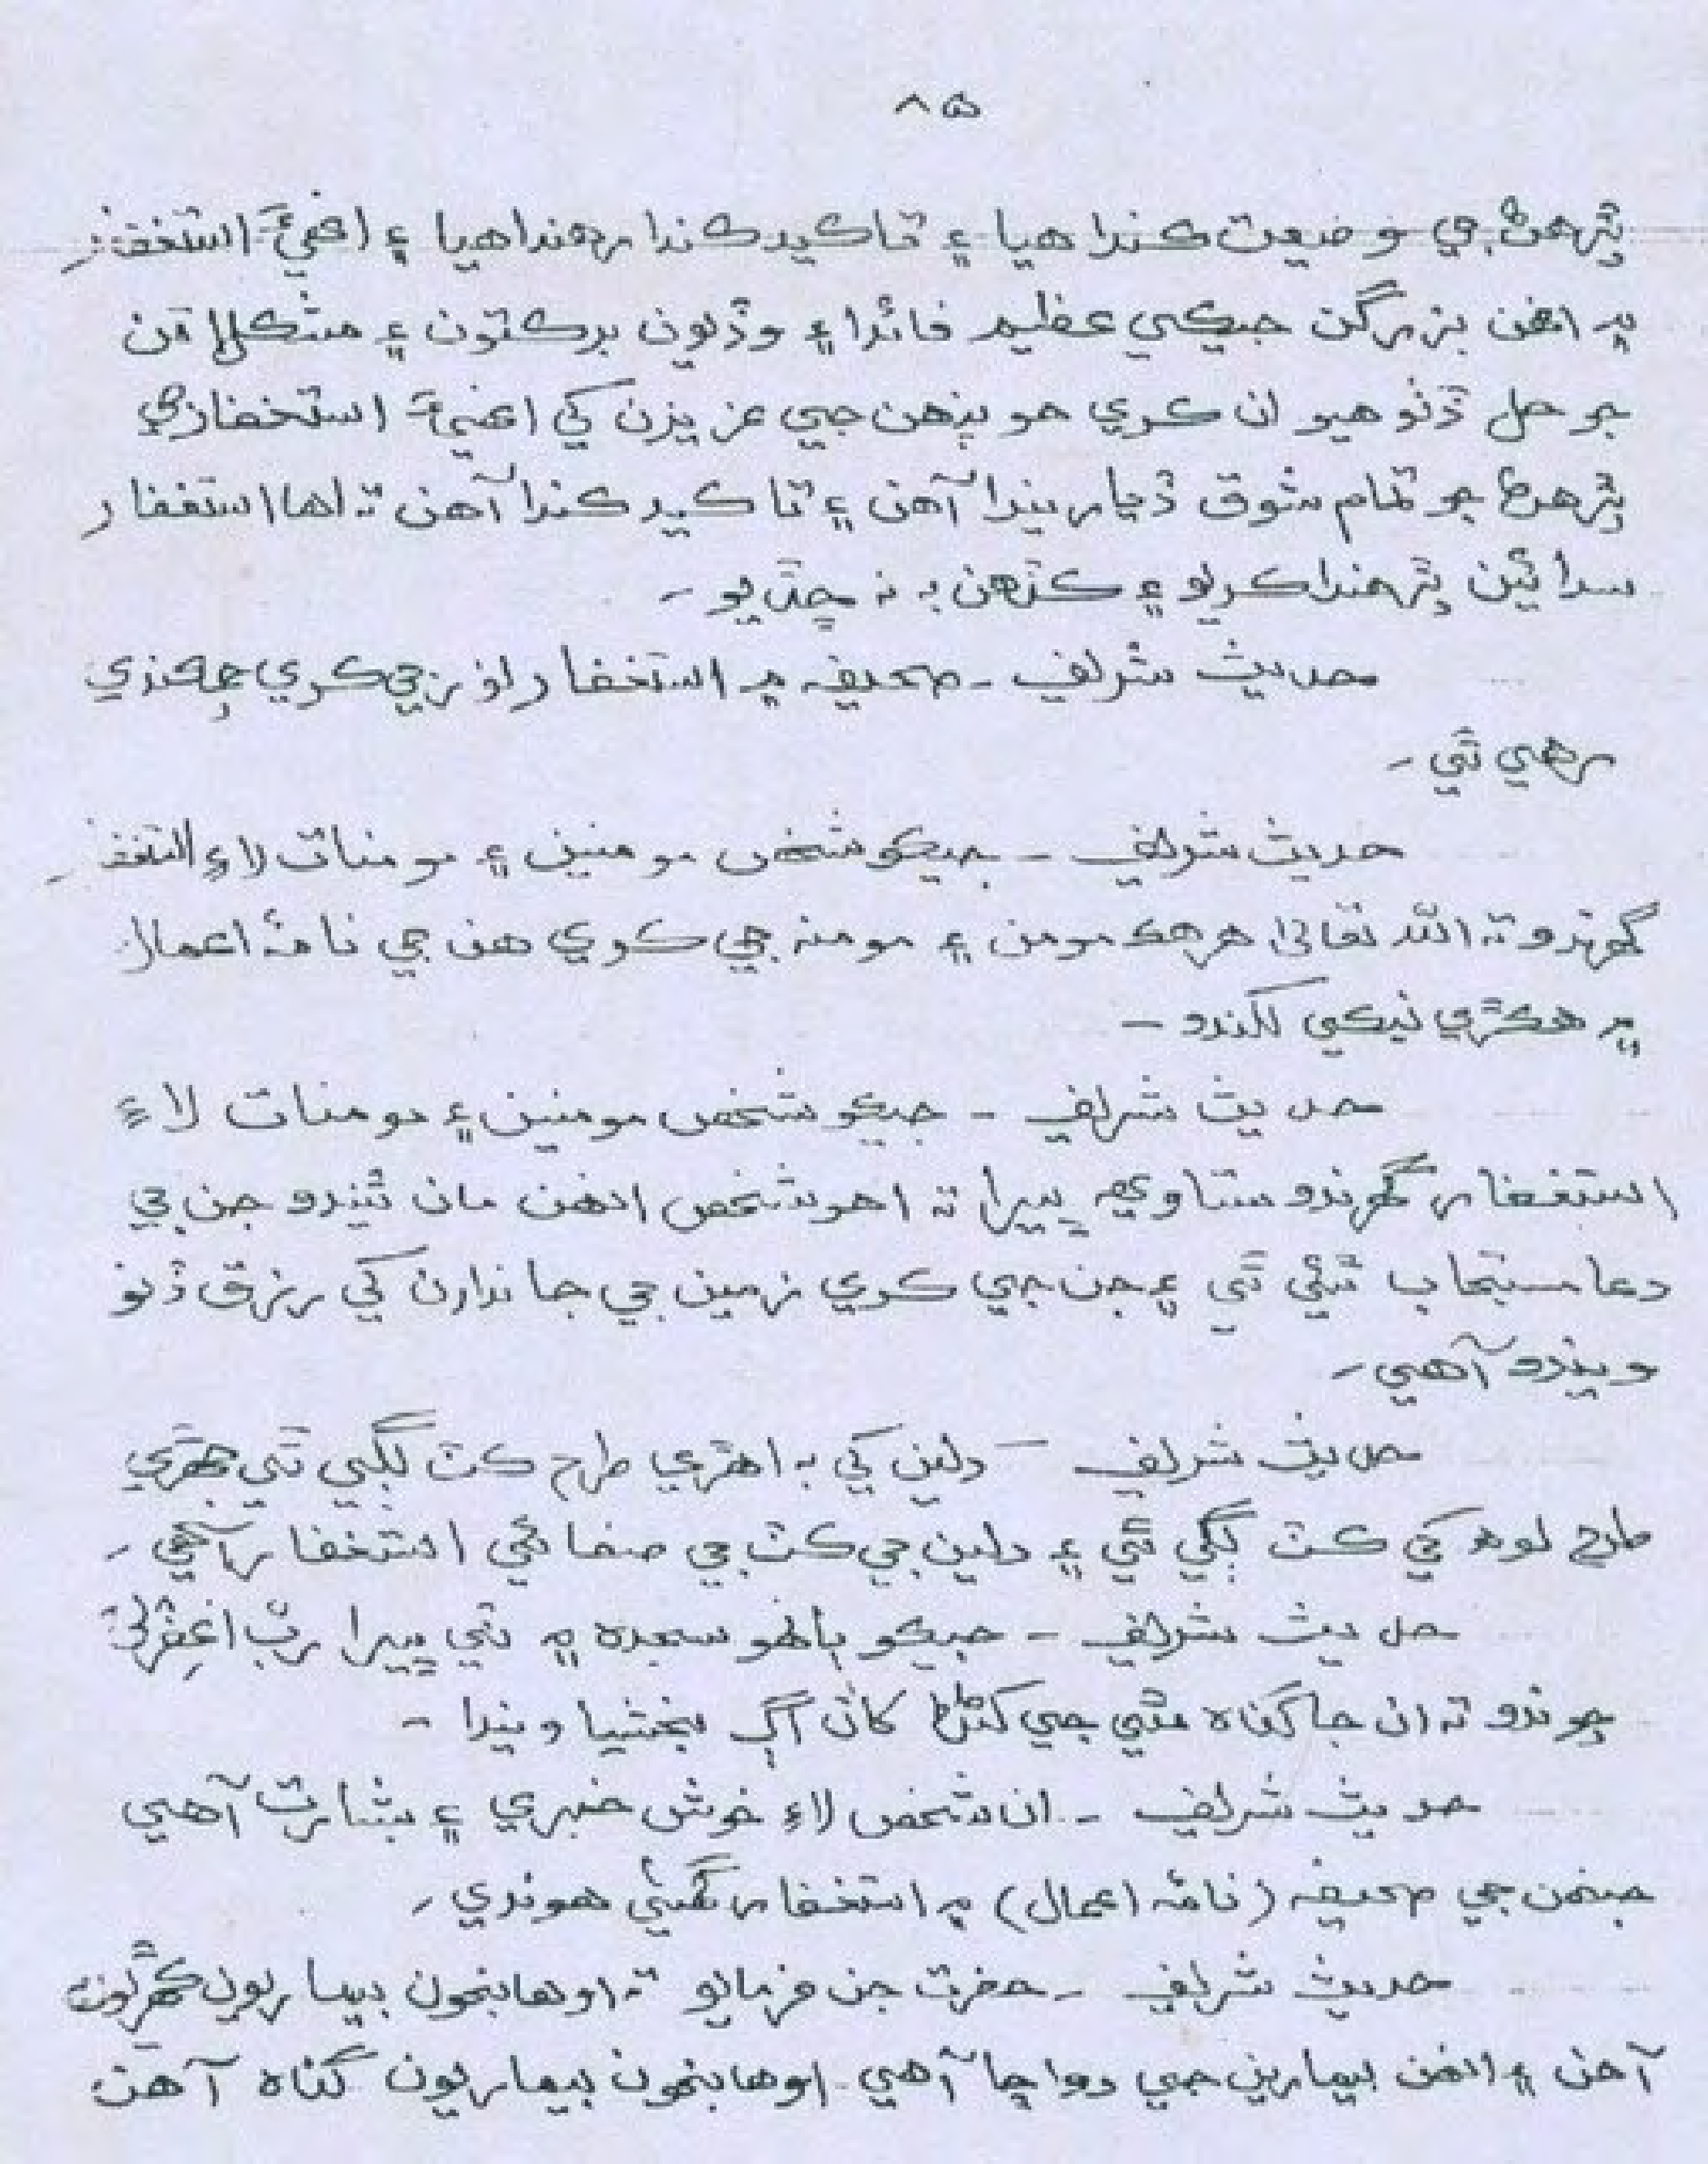 ۸۵
پڙهڻ جي وصيعت ڪندا هيا ۽ تاڪيد ڪندا رهندا هيا ۽ استغفار
۾ انهن بزرگن جيڪي عظيم فائدا ۽ وڏيون برڪتون ۽ مشڪلاتن
جو حل ڏٺو هيو ان ڪري هو پنهن جي عزيزن کي استغفار جي
پڙهڻ جو تمام شوق ڏياريندا آهن ۽ تاڪيد ڪندا آهن ته اها استغفار
سدائين پڙهندا ڪريو ۽ ڪڏهن به نه ڇڏيو -
حديث شريف - صحيفه ۾ استغفار نور ٿي ڪري چمڪندي
رهي ٿي -
حديث شريف - جيڪو شخص مومنين ۽ مومنات لاءِ استغفار
گهرندو ته الله تعاليٰ هر هڪ مومن ۽ مومنه جي ڪري هن جي نامهٔ اعمال
۾ هڪڙي نيڪي لکندو -
حديث شريف - جيڪو شخص مومنين ۽ مومنات لاءِ
استغفار گهرندو ستاويهه ڀيرا ته اهو شخص انهن مان ٿيندو جن جي
دعا مستجاب ٿئي ٿي ۽ جن جي ڪري زمين جي جاندارن کي رزق ڏنو
ويندو آهي -
حديث شريف - دلين کي به اهڙي طرح ڪٽ لڳي ٿي جهڙي
طرح لوهه کي ڪٽ لڳي ٿي ۽ دلين جي ڪٽ جي صفائي استغفار آهي -
حديث شريف - جيڪو ٻانهو سجده ۾ ٽي ڀيرا ربِّ اغفرلي
چوندو ته ان جا گناه مٿي جي کڻڻ کان اڳ بخشيا ويندا -
حديث شريف - ان شخص لاءِ خوش خبري ۽ بشارت آهي
جنهن جي صحيفه (نامهٔ اعمال) ۾ استغفار گهڻي هوندي -
حديث شريف - حضرت جن فرمايو ته اوهانجون بيماريون ڪهڙيون
آهن ۽ انهن بيمارين جي دوا ڇا آهي اوهانجون بيماريون گناه آهن